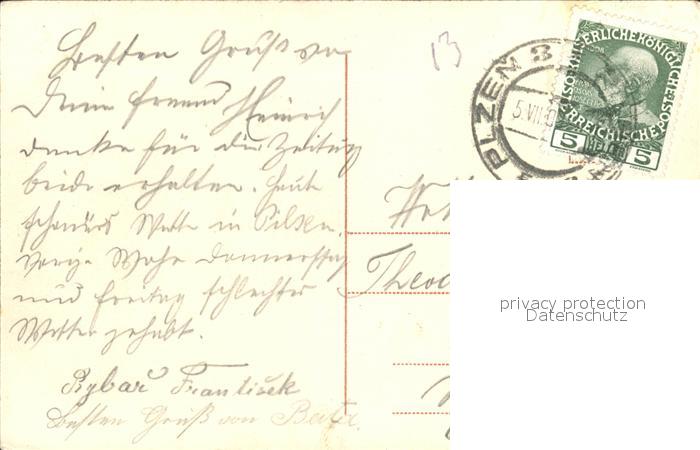 Besten Gruß von
Deim freund Heinrich
danke für die Zeitung
beide erhalten. Heute
schönders Wetter in Pilsen.
vorige Wohe Donnerstag
und freitag schlechtes
Wetter gehabt.
Rybař František
besten Gruß von
13
PLZEN 3
5. VII.
KAISERLICHE KÖNIGLICHE
ÖSTERREICHISCHE POST
5 5
Theod
privacy protection
Datenschutz